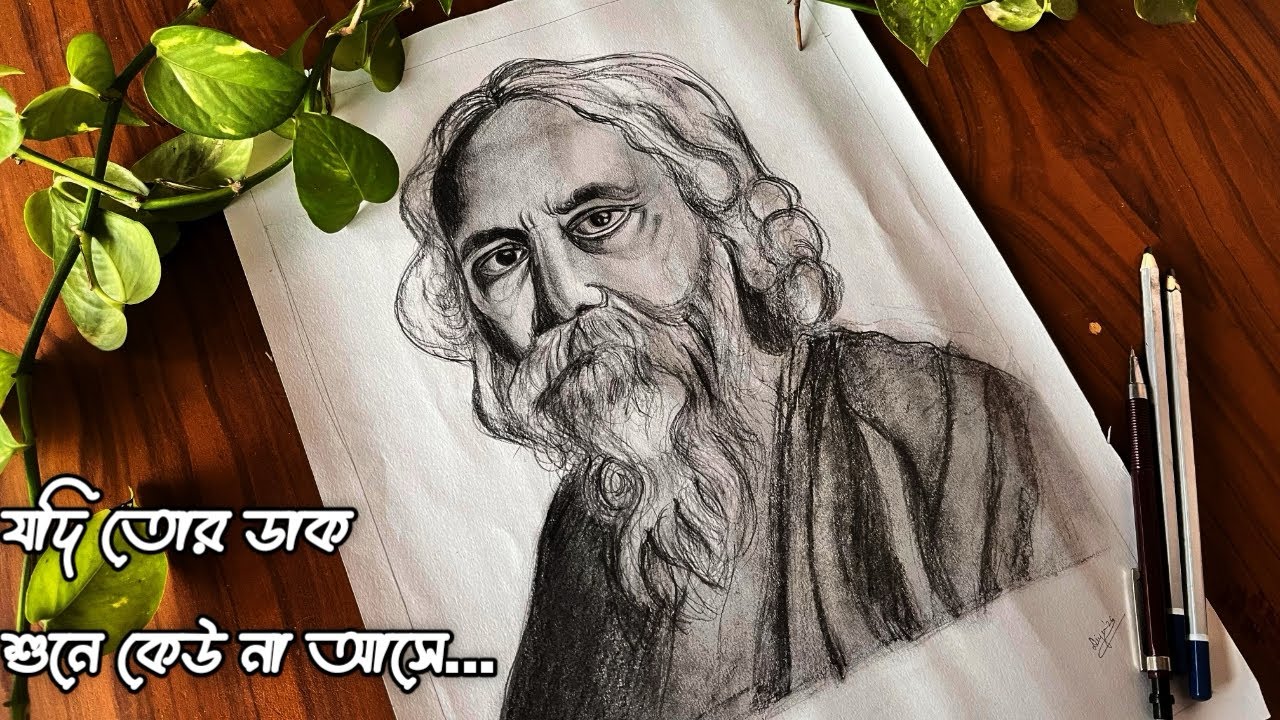 যদি তোর ডাক
শুনে কেউ না আসে...